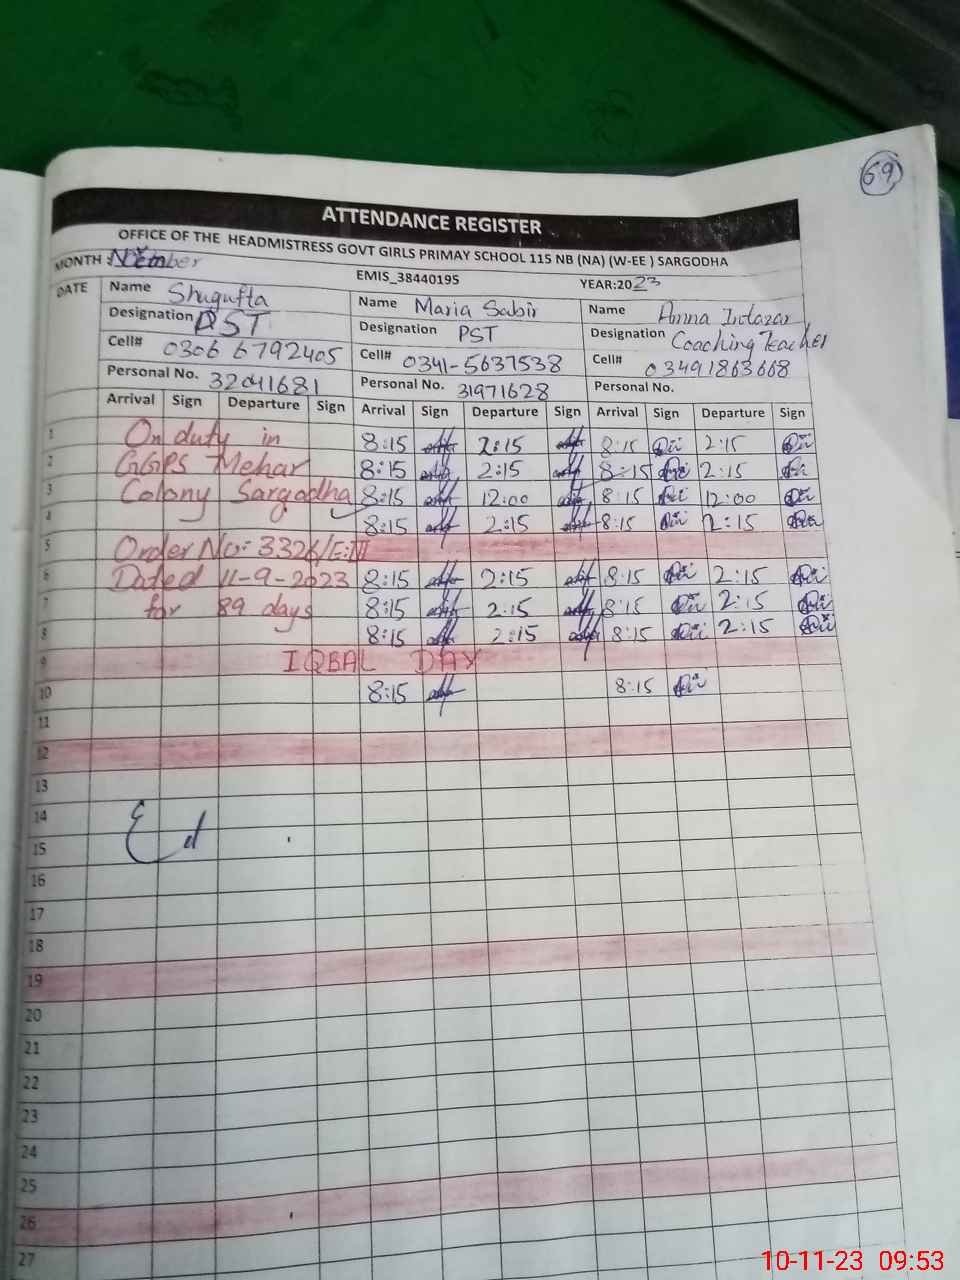 69
ATTENDANCE REGISTER
OFFICE OF THE HEADMISTRESS GOVT GIRLS PRIMAY SCHOOL 115 NB (NA) (W-EE ) SARGODHA
MONTH : November EMIS_38440195 YEAR:2023
DATE Name Shugufta Name Maria Sabir Name Anna Intazar
Designation PST Designation PST Designation Coaching Teacher
Cell# 0306 6792405 Cell# 0341-5637538 Cell# 03491863668
Personal No. 32041681 Personal No. 31971628 Personal No.
Arrival Sign Departure Sign Arrival Sign Departure Sign Arrival Sign Departure Sign
1 On duty in 8:15 2:15 8:15 2:15
2 GGPS Mehar 8:15 2:15 8:15 2:15
3 Colony Sargodha 8:15 12:00 8:15 12:00
4 8:15 2:15 8:15 2:15
5 Order No: 3326/E:III
6 Dated 11-9-2023 8:15 2:15 8:15 2:15
7 for 89 days 8:15 2:15 8:15 2:15
8 8:15 2:15 8:15 2:15
9 IQBAL DAY
10 8:15 8:15
11
12
13
14
15
16
17
18
19
20
21
22
23
24
25
26
27
10-11-23 09:53